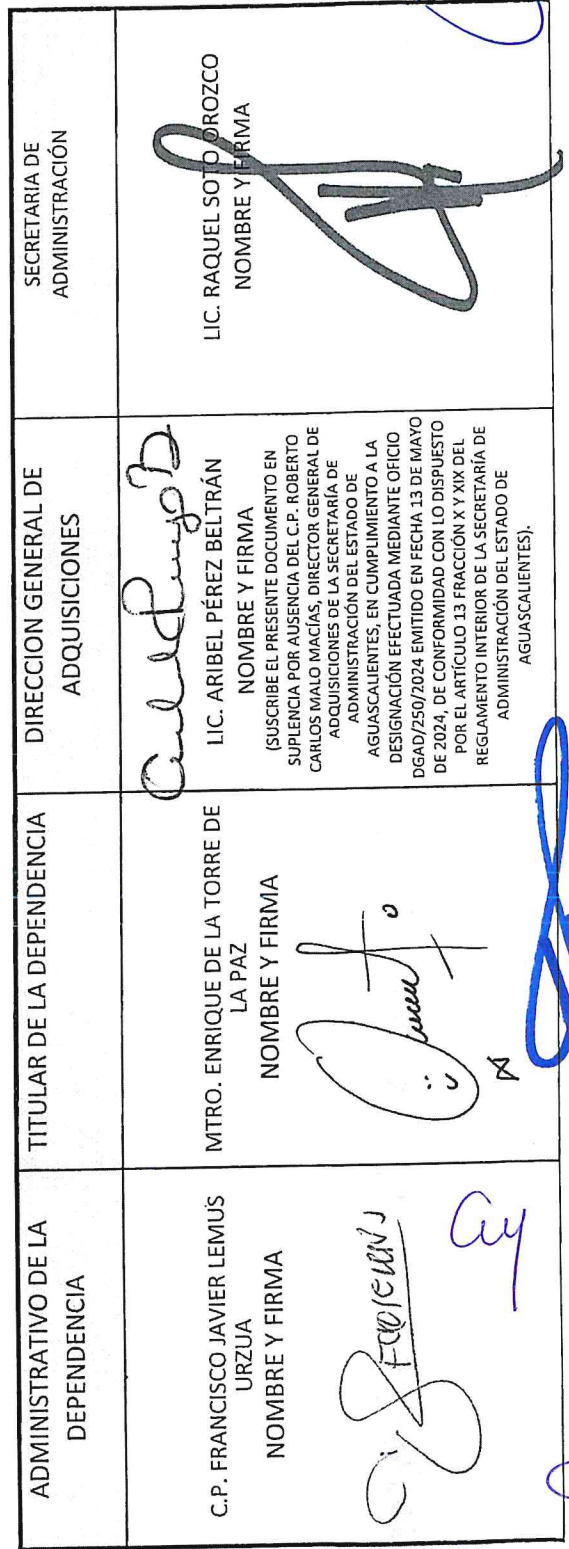 ADMINISTRATIVO DE LA
DEPENDENCIA
TITULAR DE LA DEPENDENCIA
DIRECCION GENERAL DE
ADQUISICIONES
SECRETARIA DE
ADMINISTRACIÓN
C.P. FRANCISCO JAVIER LEMUS
URZUA
NOMBRE Y FIRMA
MTRO. ENRIQUE DE LA TORRE DE
LA PAZ
NOMBRE Y FIRMA
LIC. ARIBEL PÉREZ BELTRÁN
NOMBRE Y FIRMA
(SUSCRIBE EL PRESENTE DOCUMENTO EN
SUPLENCIA POR AUSENCIA DEL C.P. ROBERTO
CARLOS MALO MACÍAS, DIRECTOR GENERAL DE
ADQUISICIONES DE LA SECRETARÍA DE
ADMINISTRACIÓN DEL ESTADO DE
AGUASCALIENTES, EN CUMPLIMIENTO A LA
DESIGNACIÓN EFECTUADA MEDIANTE OFICIO
DGAD/250/2024 EMITIDO EN FECHA 13 DE MAYO
DE 2024, DE CONFORMIDAD CON LO DISPUESTO
POR EL ARTÍCULO 13 FRACCIÓN X Y XIX DEL
REGLAMENTO INTERIOR DE LA SECRETARÍA DE
ADMINISTRACIÓN DEL ESTADO DE
AGUASCALIENTES).
LIC. RAQUEL SOTO OROZCO
NOMBRE Y FIRMA